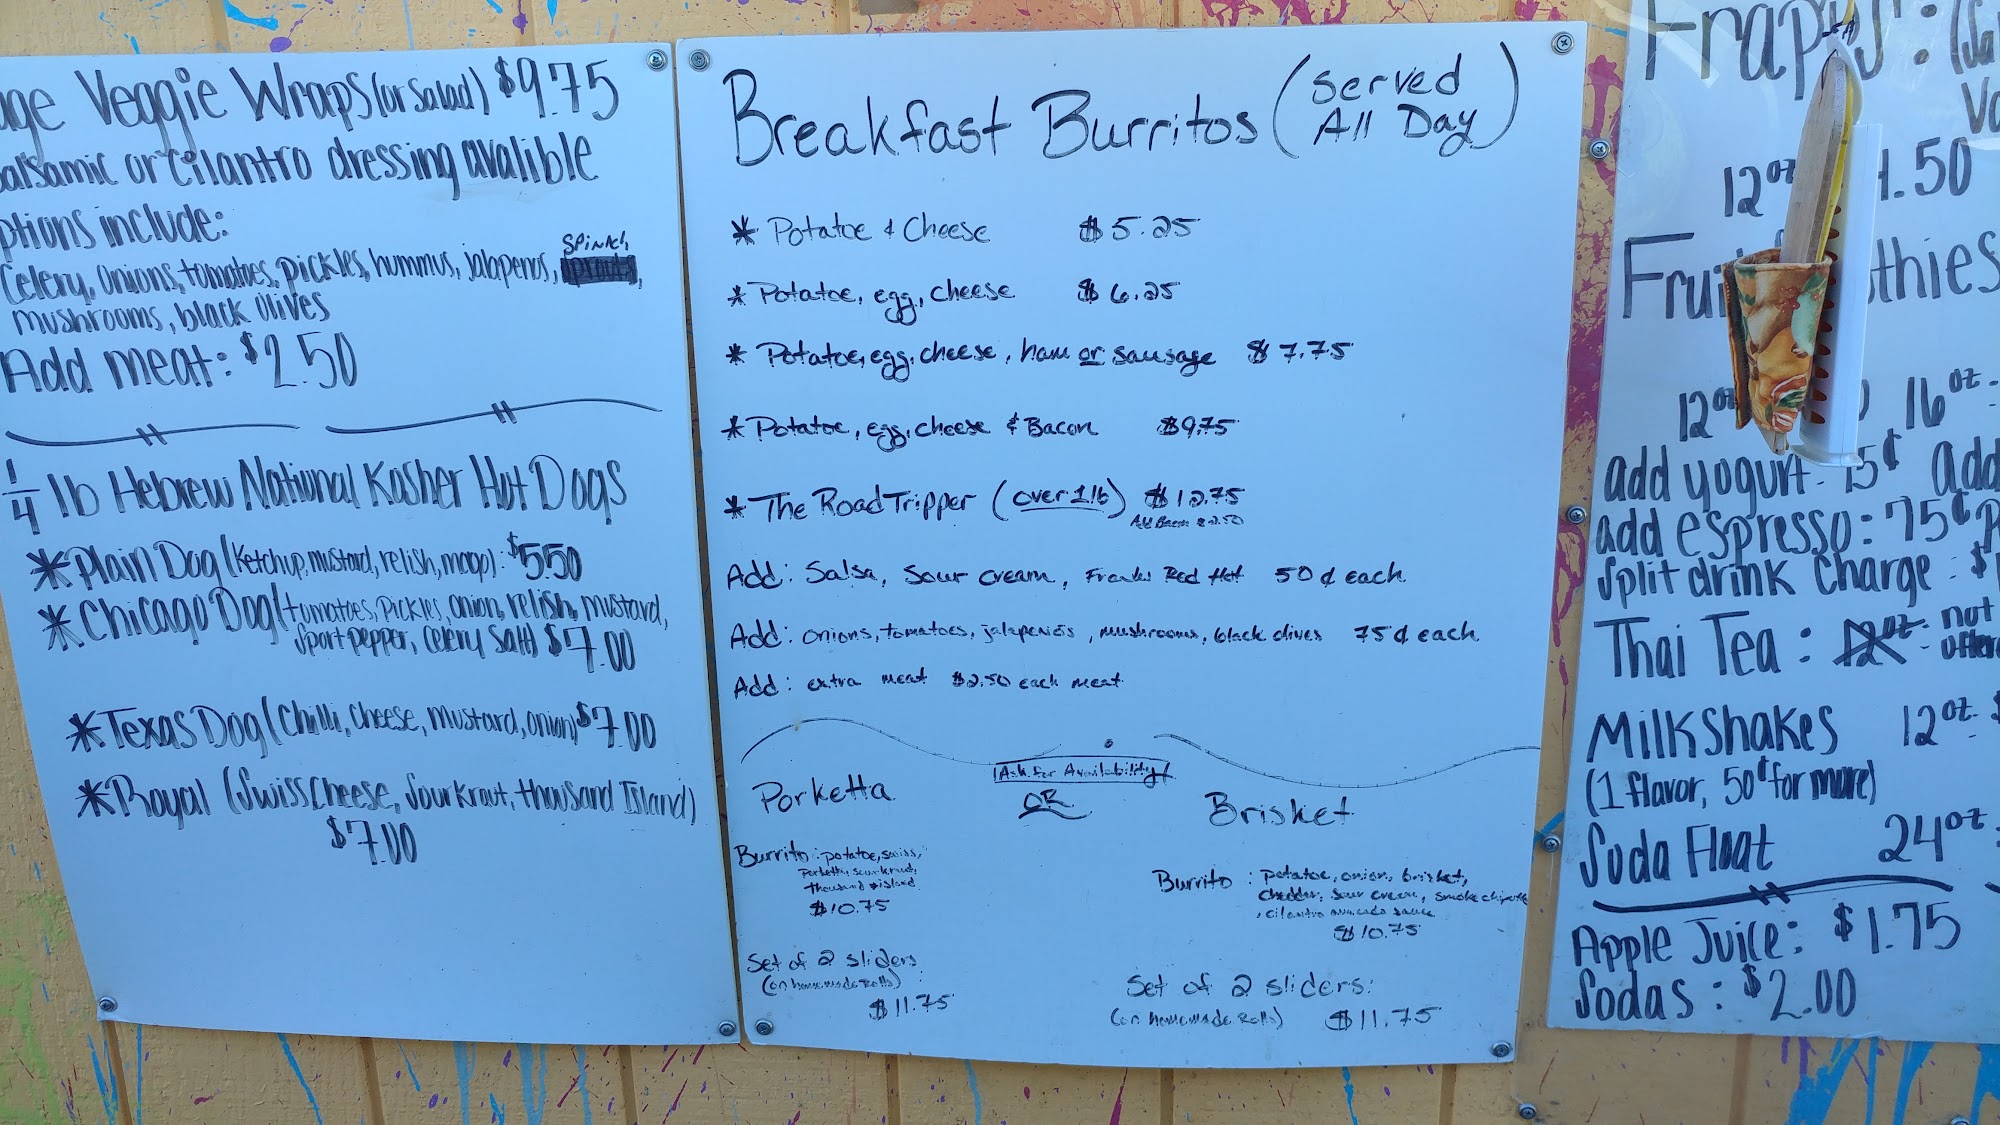 Veggie Wraps (or Salad) $9.75
or Cilantro dressing avalible
include:
Celery, Onions, tomatoes, pickles, hummus, jalapenos, Spinach,
mushrooms, black olives
Add meat: $2.50
1/4 lb Hebrew National Kosher Hot Dogs
* Plain Dog (Ketchup, mustard, relish, mayo): $5.50
* Chicago Dog (tomatoes, Pickles, onion, relish, mustard,
Sport pepper, Celery Salt) $7.00
* Texas Dog (Chilli, Cheese, mustard, onion) $7.00
* Royal (Swiss Cheese, Sourkraut, thousand Island)
$7.00
Breakfast Burritos (Served
All Day)
* Potatoe & Cheese $5.25
* Potatoe, egg, cheese $6.25
* Potatoe, egg, cheese, ham or sausage $7.75
* Potatoe, egg, cheese & Bacon $9.75
* The Road Tripper (over 1 lb) $12.75
Add Bacon $2.50
Add: Salsa, Sour cream, Franks Red Hot 50¢ each
Add: onions, tomatoes, jalapenos, mushrooms, black olives 75¢ each
Add: extra meat $2.50 each meat
(Ask for Availability)
Porketta OR Brisket
Burrito: potatoe, swiss,
Porketta, sourkraut,
thousand island
$10.75
Set of 2 sliders
(on homemade Rolls)
$11.75
Burrito: potatoe, onion, brisket,
cheddar, sour cream, smoke chipotle
, cilantro avocado sauce
$10.75
Set of 2 sliders:
(on homemade Rolls) $11.75
12oz
.50
12oz 16oz
add yogurt
add espresso: 75¢
Split drink Charge: $
Thai Tea: 12oz - not
Milkshakes 12oz
(1 flavor, 50¢ for more)
Soda Float 24oz
Apple Juice: $1.75
Sodas: $2.00